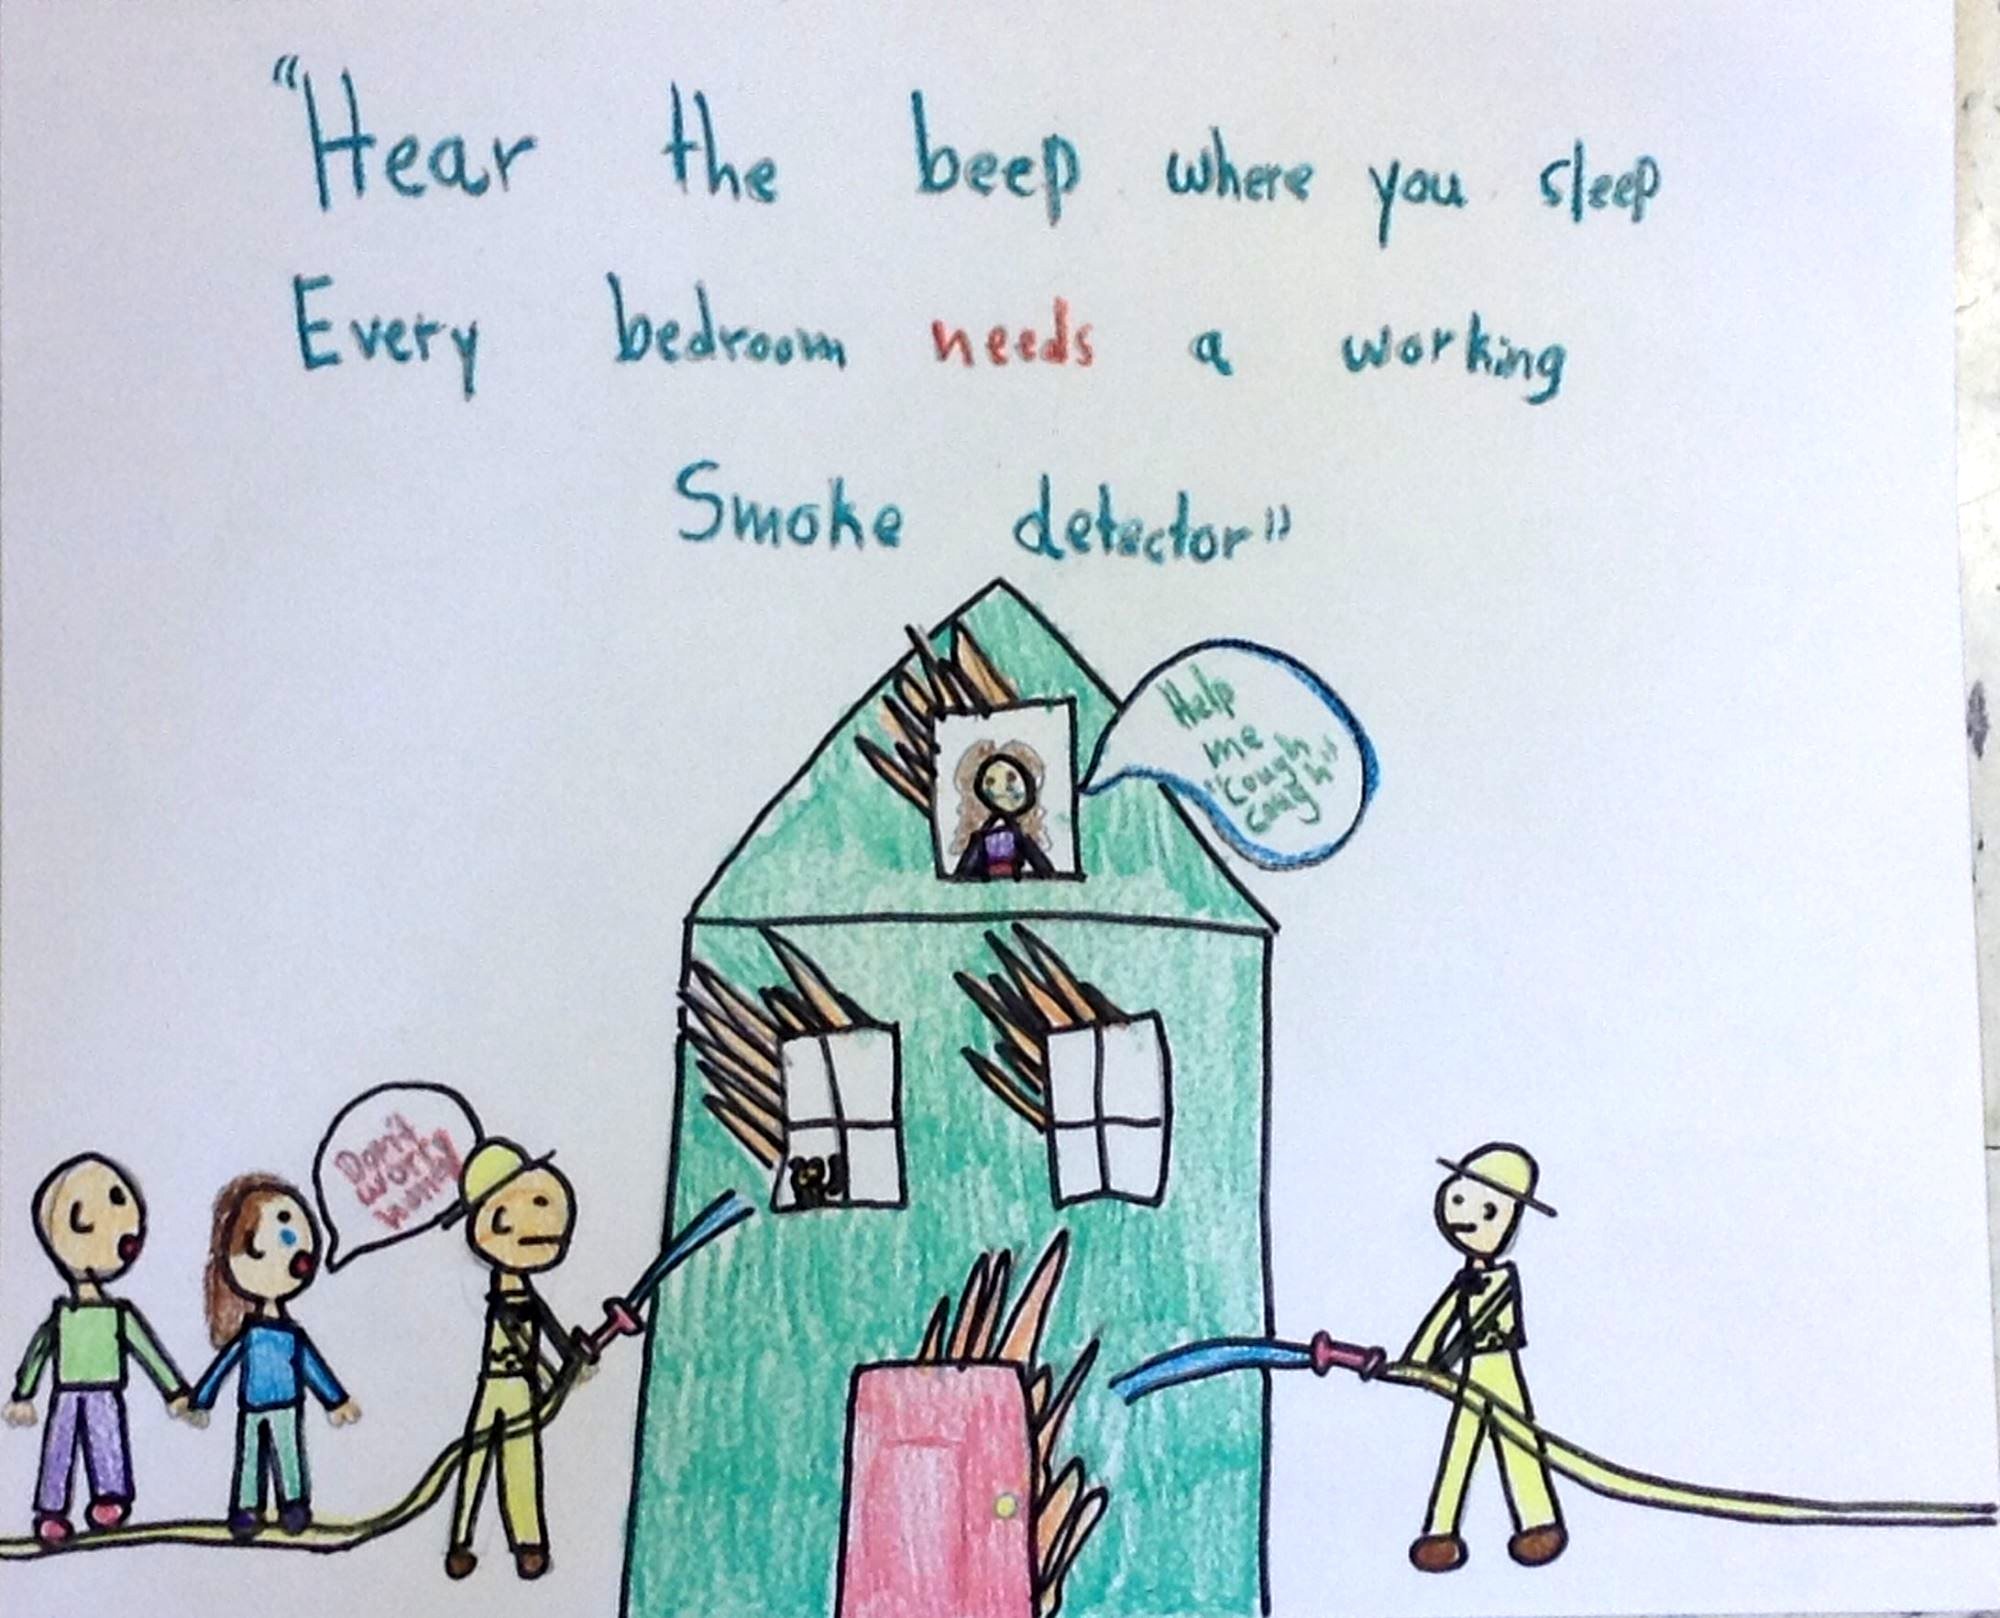 "Hear the beep where you sleep
Every bedroom needs a working
Smoke detector"
Help
me
"cough
cough"
Don't
worry
honey